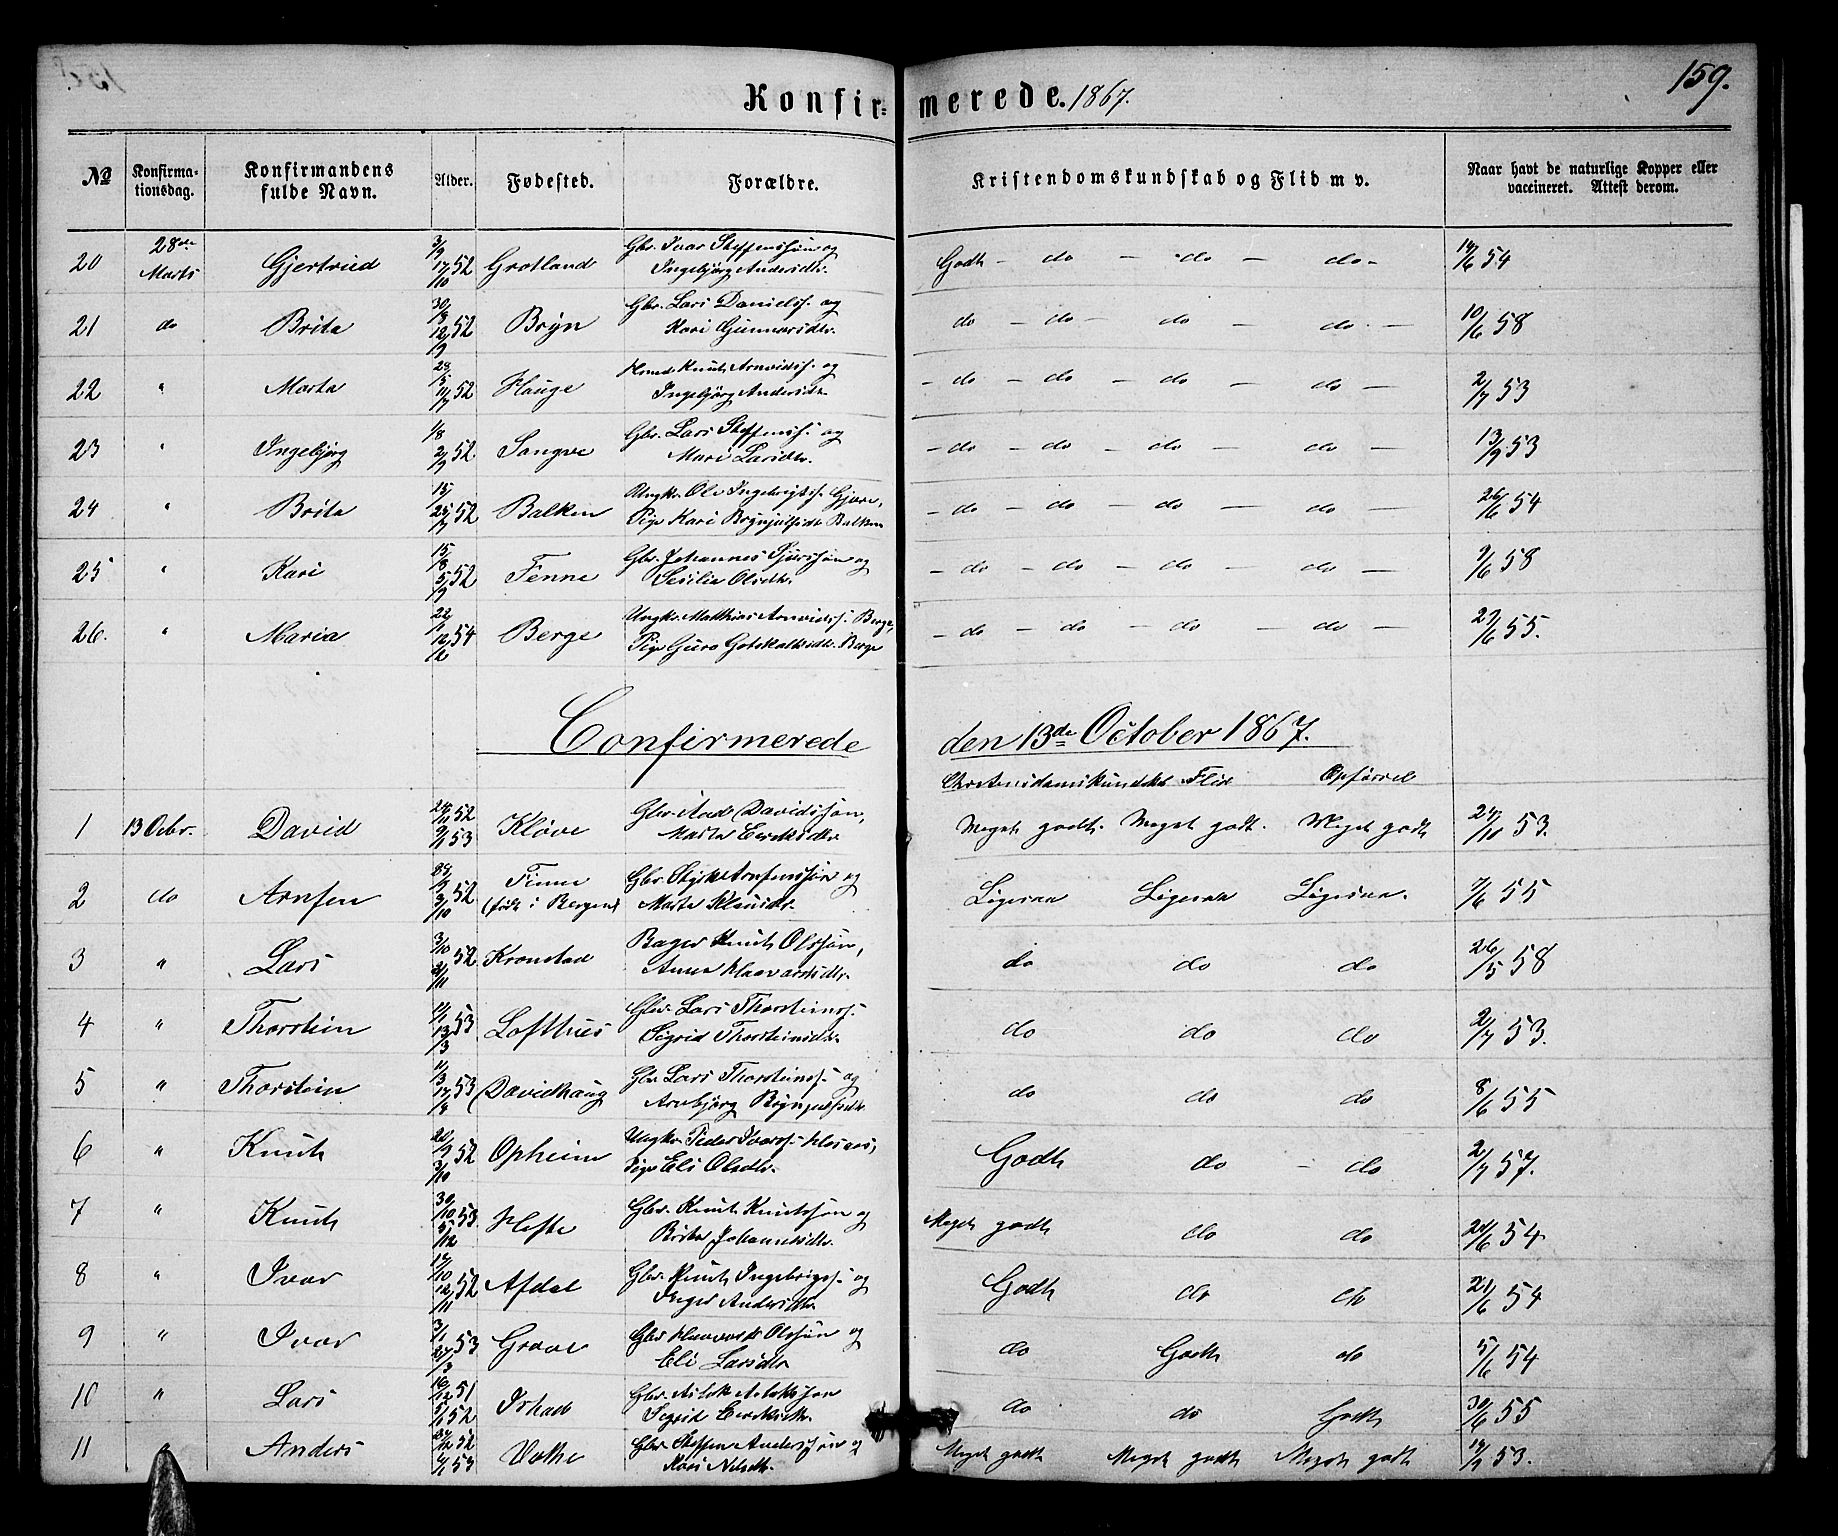 159.
Konfirmerede. 1867.
No Konfirmationsdag. Konfirmandens fulde Navn. Alder. Fødested. Forældre. Kristendomskundskab og Flid m v. Naar havt de naturlige Kopper eller vaccineret. Attest derom.
20 28de Marts Gjertrud 3/9 17/10 52 Grotland Gbr. Ivar Steffenssøn og Ingebjørg Andersdtr. Godt - do - do - do - 14/6 54
21 do Brita 30/8 12/9 52 Bryn Gbr. Lars Danielss. og Kari Gunnarsdtr. do - do - do - do - 10/6 58
22 " Marta 11/7 52 Hauge Knut Arnvidss. og Ingebjørg Andersdtr. - do - do - do - do - 2/7 53
23 " Ingebjørg 1/8 2/9 52 Sangve Gbr. Lars Steffenss. og Mari Larsdtr. - do - do - do - do - 13/9 53
24 " Brita 25/7 52 Balken Ungkr. Ole Ingebrigts. Gjære, Pige Kari Brynjulfsdt. Balken - do - do - do - do - 26/6 54
25 " Kari 15/8 5/9 52 Finne Gbr. Johannes Sjurssøn og Sesilia Olsdtr. - do - do - do - do - 9/6 58
26. " Maria 12/2 54 Berge Ungkr. Matthias Arnvidss. Berge, Pige Guro Gotskalksdtr. Berge - do - do - do - do - 27/6 55.
Confirmerede den 13de October 1867.
Christendomskundskb Flid Opførsel
1 13 Octbr. David 52 9/1 53 Kløve Gbr. And Davidssøn, Marta Eeriksdtr. Meget godt. Meget godt. Meget godt 24/10 53.
2 do Arnfin 3/10 52 Finne (født i Bergen) Gbr. Styrk Arnfinssøn og Marta Klausdtr. Ligesaa Ligesaa Ligesaa. 7/6 55
3 " Lars 3/10 21/11 52 Kronstad Bager Knut Olssøn, Anna Haavarsdtr. do do do 26/5 58
4 " Thorstein 11/1 13/3 53 Lofthus Gbr. Lars Thorsteinss. Sigrid Thorsteinsdtr. do do do 2/7 53.
5 " Thorstein 11/3 17/4 53 Davidhaug Gbr. Lars Thorsteinss. og Arnbjørg Brynjulfsdtr. do do do 8/6 55
6 " Knut 20/9 3/10 52 Opheim Ungkr. Peder Ivarss. Pige Eli Olsdtr. Godt do - do 2/7 57.
7 " Knut 30/10 5/12 53 Hefte Gbr. Knut Knutssøn og Brita Johannesdtr. Meget godt do do 24/6 54
8 " Ivar 17/10 12/11 52 Afdal Gbr. Knut Ingebrigss. og Inger Andersdtr. Godt do do 24/6 54
9 " Ivar 3/1 27/3 53 Grove Gbr. Haavard Olssøn og Eli Larsdtr do Godt do 5/6 54
10 " Lars 16/12 51 5/1 52 Ishad Gbr. Aslak Aslakssøn Sigrid Eeriksdtr. do do Godt 30/6 55
11 " Anders 52 53 Vethe Gbr. Steffen Anderssøn og Kari Nilsdtr. Meget godt Meget godt Meget godt 14/7 53.